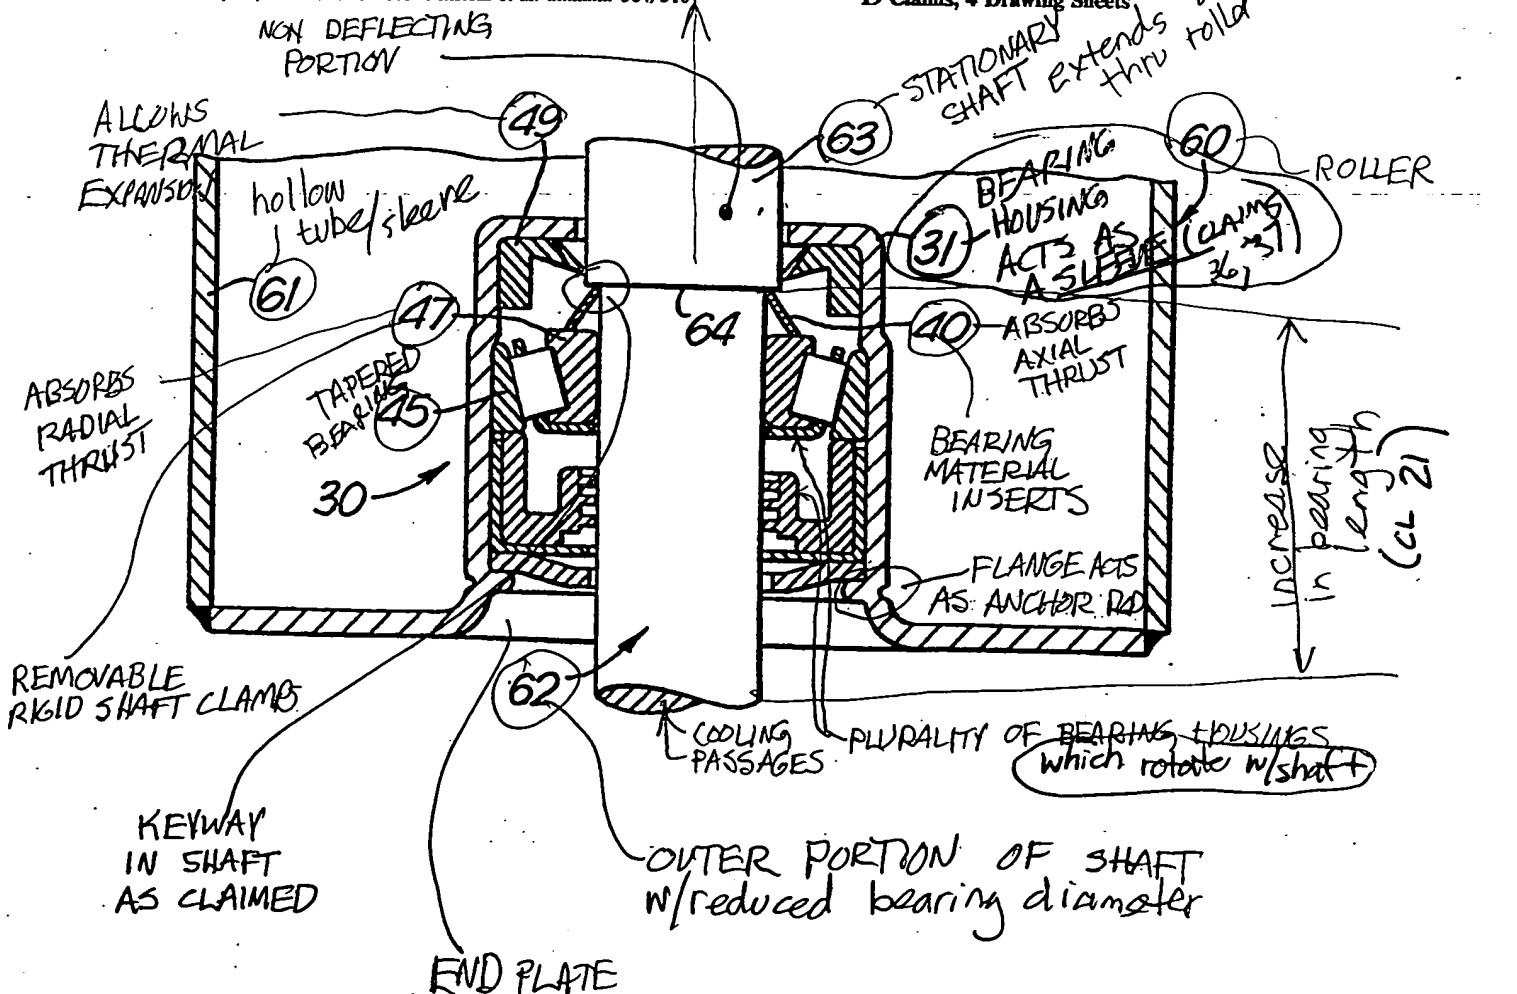 15 Claims, 4 Drawing Sheets
NON DEFLECTING
PORTION
STATIONARY
SHAFT extends
thru roller
ALLOWS
THERMAL
EXPANSION
49
63
60
ROLLER
hollow
tube/sleeve
61
31
BEARING
HOUSING
ACTS AS
A SLEEVE
(CLAIMS
36, 37)
47
64
40
ABSORBS
AXIAL
THRUST
ABSORBS
RADIAL
THRUST
TAPERED
BEARINGS
45
30
BEARING
MATERIAL
INSERTS
Increase
in bearing
length
(CL 21)
FLANGE ACTS
AS ANCHOR ROD
REMOVABLE
RIGID SHAFT CLAMPS
62
COOLING
PASSAGES
PLURALITY OF BEARING HOUSINGS
which rotate w/shaft
KEYWAY
IN SHAFT
AS CLAIMED
OUTER PORTION OF SHAFT
w/reduced bearing diameter
END PLATE